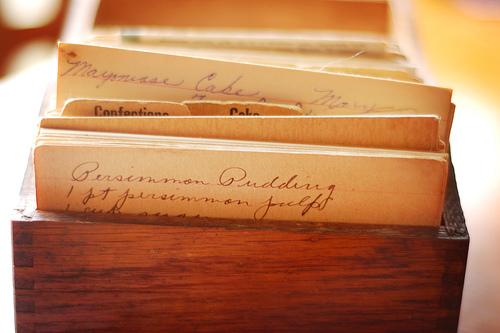 Maynnaise Cake Mary
Confections Cake
Persimmon Pudding
1 pt persimmon pulp
1 cup sugar